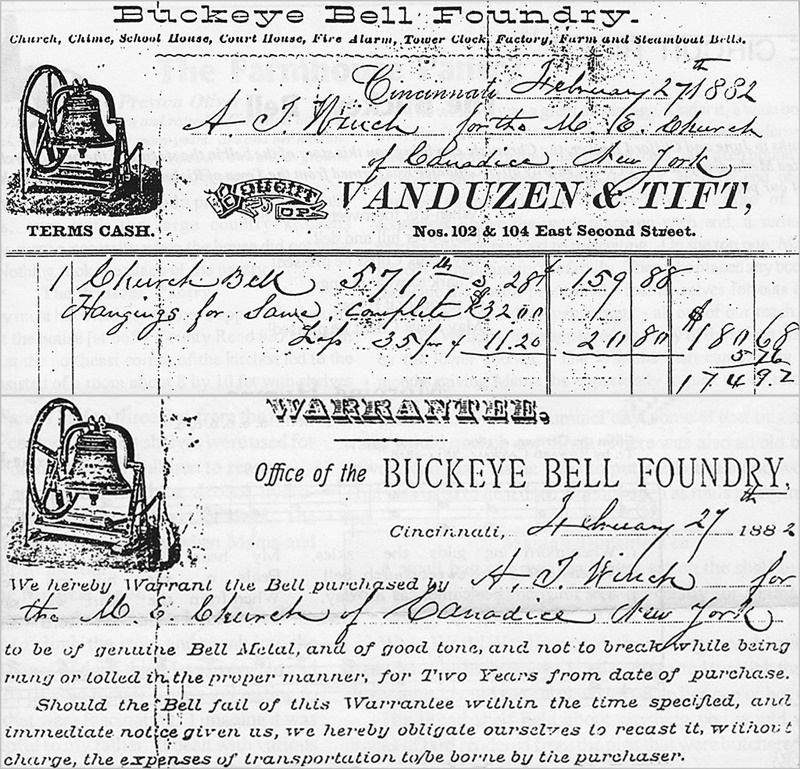 Buckeye Bell Foundry.
Church, Chime, School House, Court House, Fire Alarm, Tower Clock, Factory, Farm and Steamboat Bells.
Cincinnati February 27th 1882
A. J. Winch for the M. E. Church
of Canadice New York
BOUGHT OF VANDUZEN & TIFT,
TERMS CASH.
Nos. 102 & 104 East Second Street.
Church Bell 571 28¢ 159 88
Hangings for Same, Complete $32 00
Less 35% 11 20 20 80 $180 68
5 76
174 92
WARRANTEE.
Office of the BUCKEYE BELL FOUNDRY,
Cincinnati, February 27th 1882
We hereby Warrant the Bell purchased by A. J. Winch for
the M. E. Church of Canadice New York
to be of genuine Bell Metal, and of good tone, and not to break while being
rung or tolled in the proper manner, for Two Years from date of purchase.
Should the Bell fail of this Warrantee within the time specified, and
immediate notice given us, we hereby obligate ourselves to recast it, without
charge, the expenses of transportation to be borne by the purchaser.